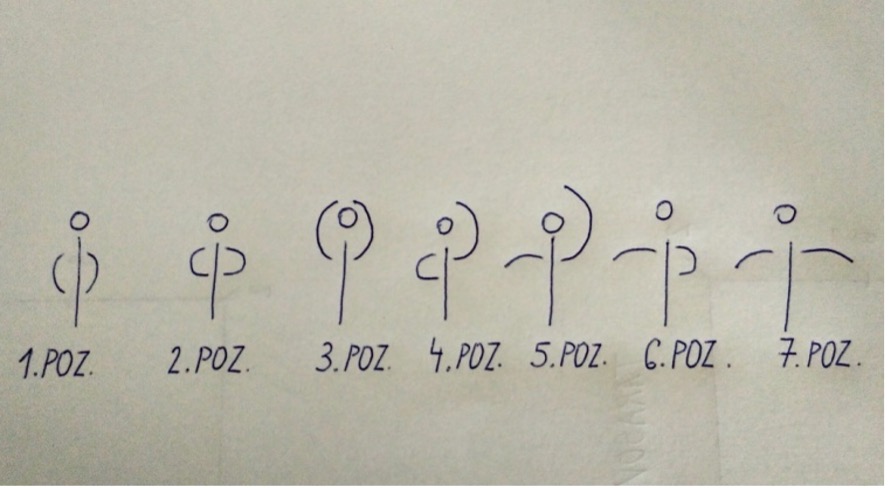 1.POZ. 2.POZ. 3.POZ. 4.POZ. 5.POZ. 6.POZ. 7.POZ.